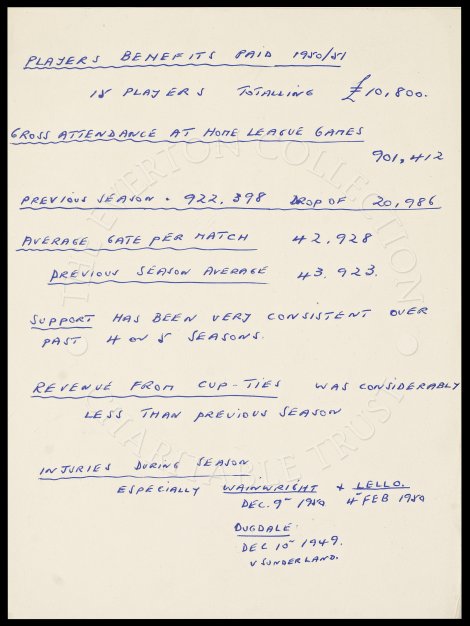 PLAYERS BENEFITS PAID 1950/51
15 PLAYERS TOTALLING £10,800.
GROSS ATTENDANCE AT HOME LEAGUE GAMES
901,412
PREVIOUS SEASON. 922,398 DROP OF 20,986
AVERAGE GATE PER MATCH 42,928
PREVIOUS SEASON AVERAGE 43,923.
SUPPORT HAS BEEN VERY CONSISTENT OVER
PAST 4 OR 5 SEASONS.
REVENUE FROM CUP-TIES WAS CONSIDERABLY
LESS THAN PREVIOUS SEASON
INJURIES DURING SEASON
ESPECIALLY WAINWRIGHT + LELLO.
DEC. 9TH 1950 4TH FEB 1950
DUGDALE.
DEC 10TH 1949.
V SUNDERLAND.
THE EVERTON COLLECTION
CHARITABLE TRUST